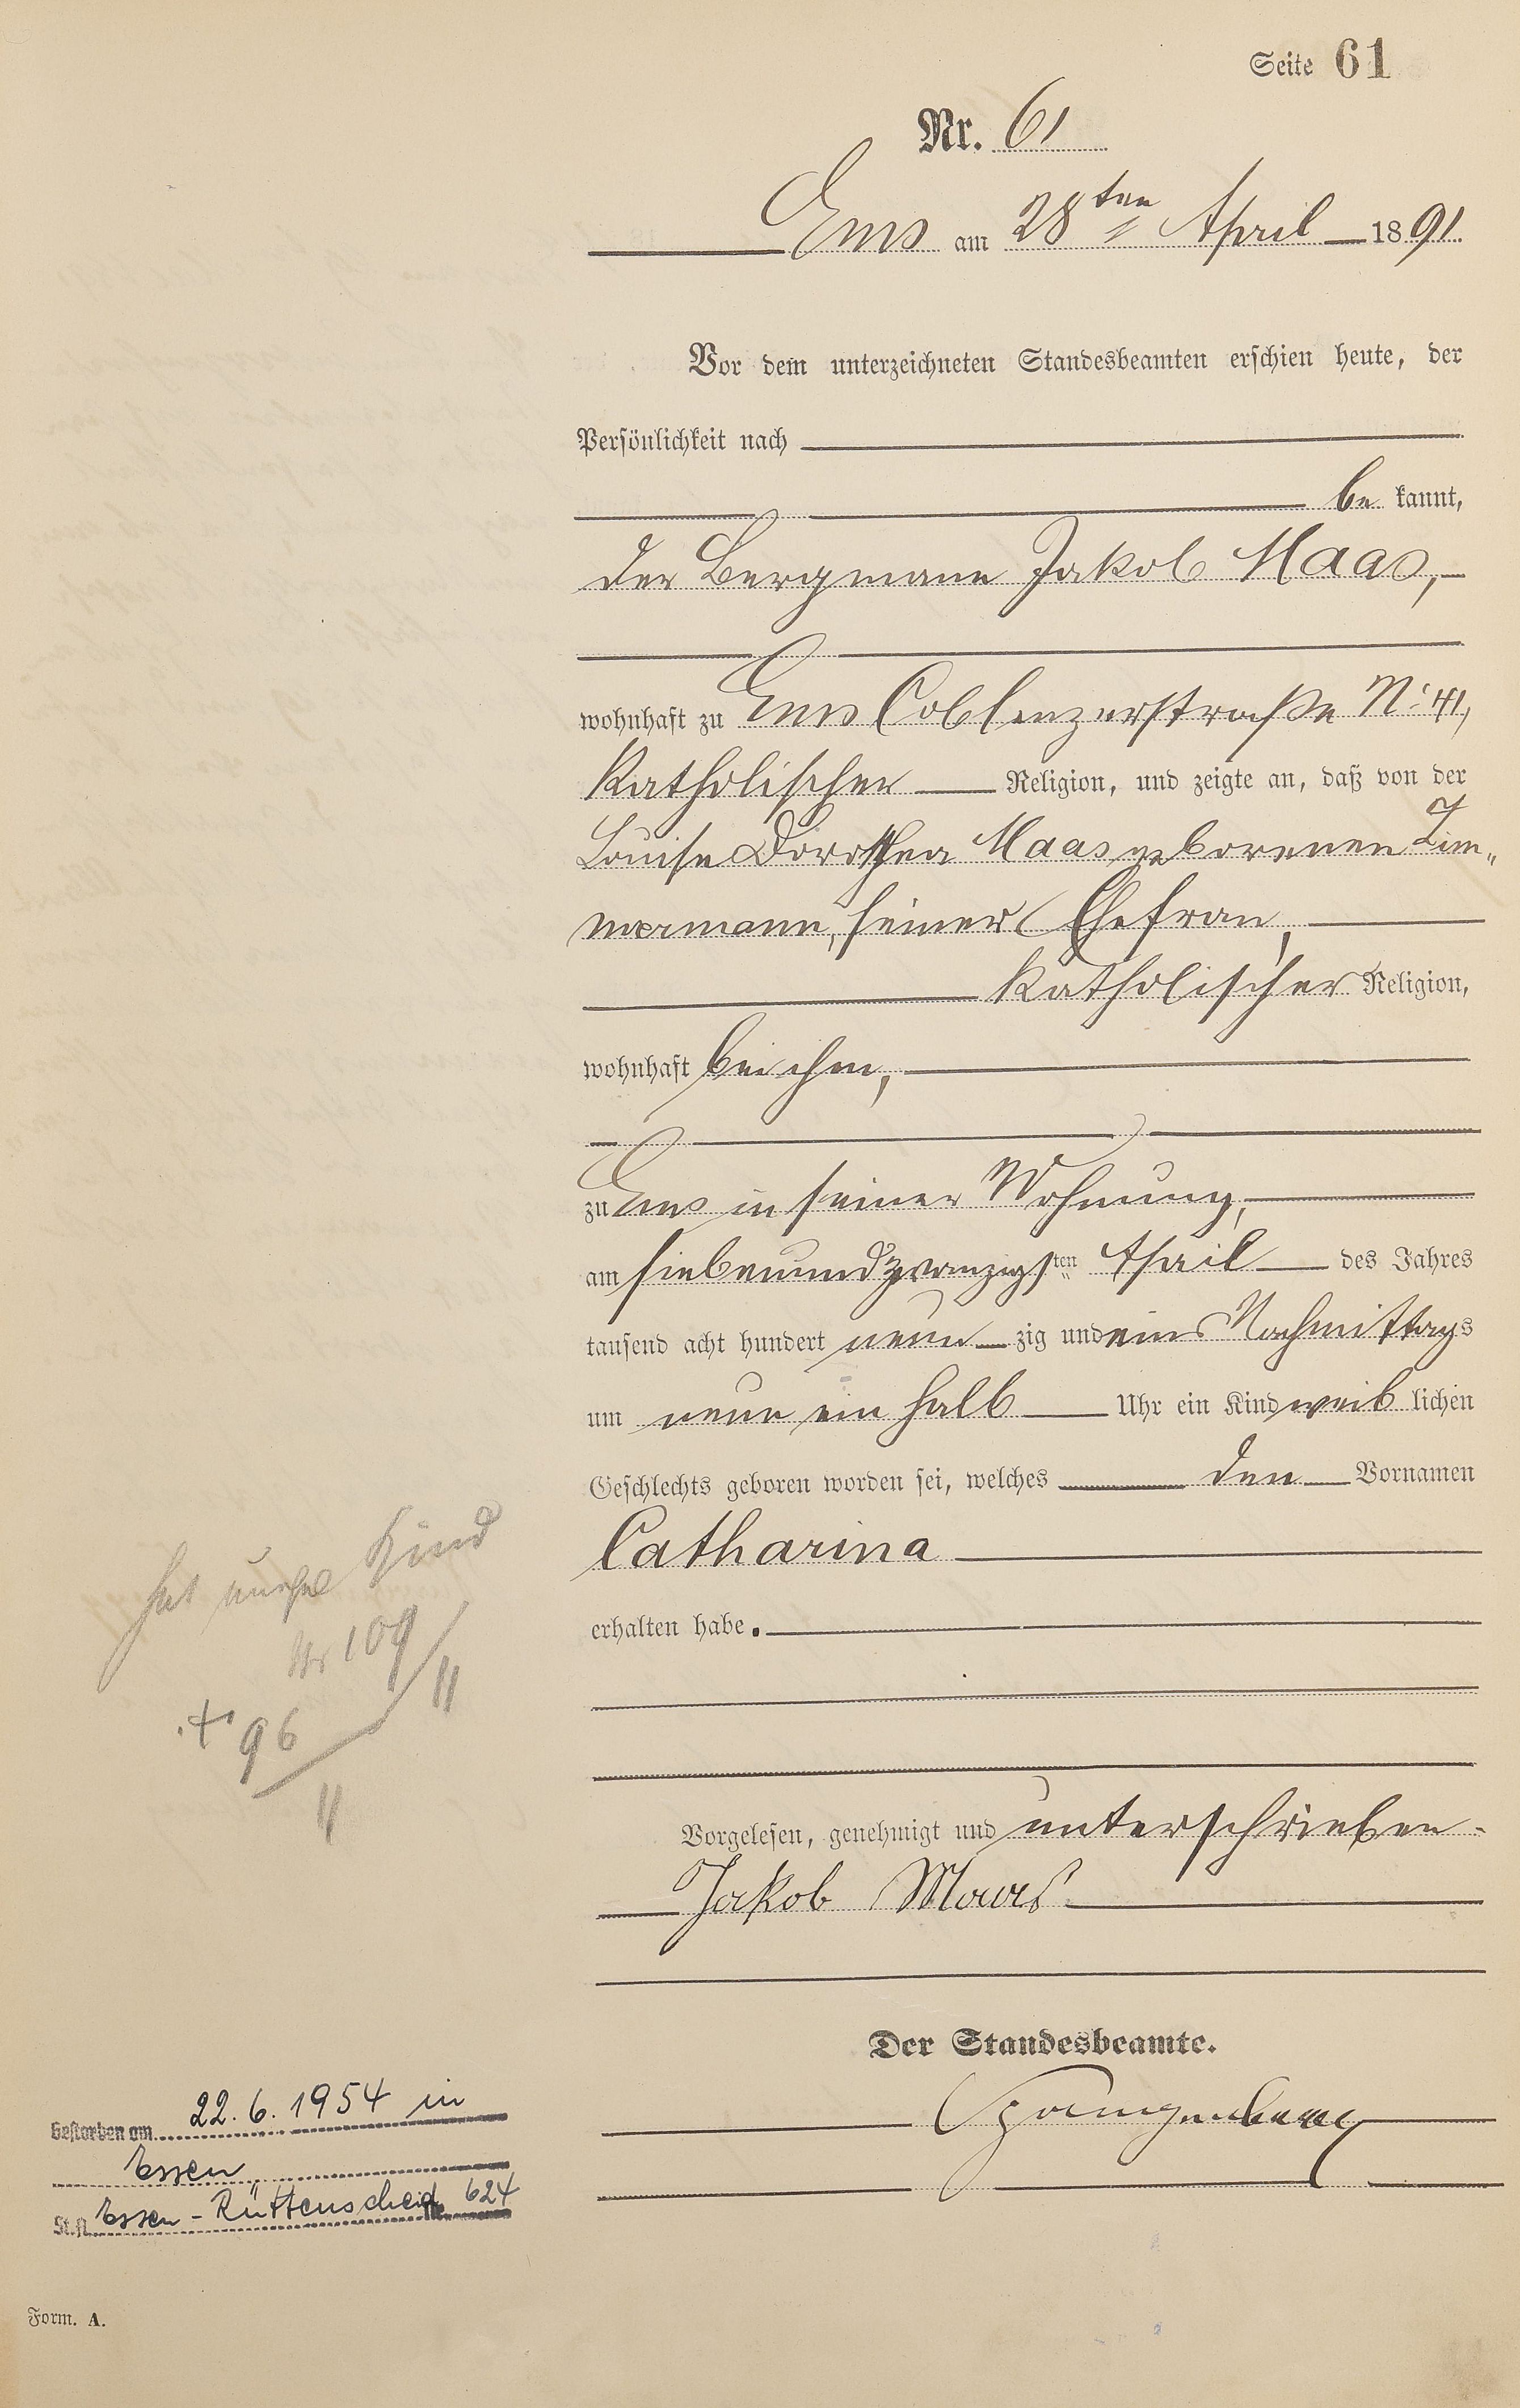 Seite 61
Nr. 61
Ems am 28ten April 1891
Vor dem unterzeichneten Standesbeamten erschien heute, der
Persönlichkeit nach
be kannt,
der Bergmann Jakob Maas,
wohnhaft zu Ems Coblenzerstraße No: 41,
katholischer Religion, und zeigte an, daß von der
Louise Dorothea Maas geborenen Zim„
mermann, seiner Ehefrau,
katholischer Religion,
wohnhaft bei ihm,
zu Ems in seiner Wohnung,
am siebenundzwanzigsten April des Jahres
tausend acht hundert neun zig und eins Nachmittags
um neun ein halb Uhr ein Kind weib lichen
Geschlechts geboren worden sei, welches den Vornamen
Catharina
erhalten habe.
hat Kind
Nr 109/11
+ 96/11
Vorgelesen, genehmigt und unterschrieben.
Jakob Maas
Der Standesbeamte.
Spangenberg
Gestorben am 22.6.1954 in
Essen
St.A. Essen-Rüttenscheid Nr. 624
Form. A.